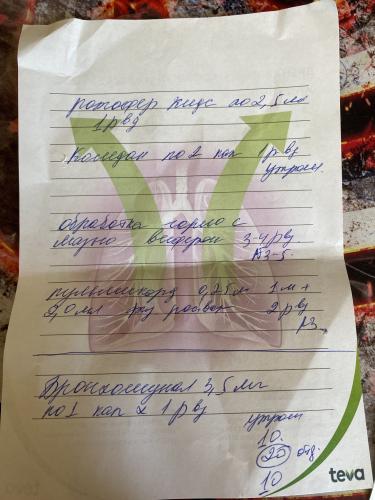 кидс по 2,5 мл
1 р в д
по 2 кап 1 р в д
утром
обработка горло с
мазью виферон 3-4 р в д
№3-5.
пульмикорд 0,25 м 1 м +
2,0 мл физ раствор 2 р в д
№3
Бронхомунал 3,5 мг
по 1 кап х 1 р в д
утром
10.
20
10
teva